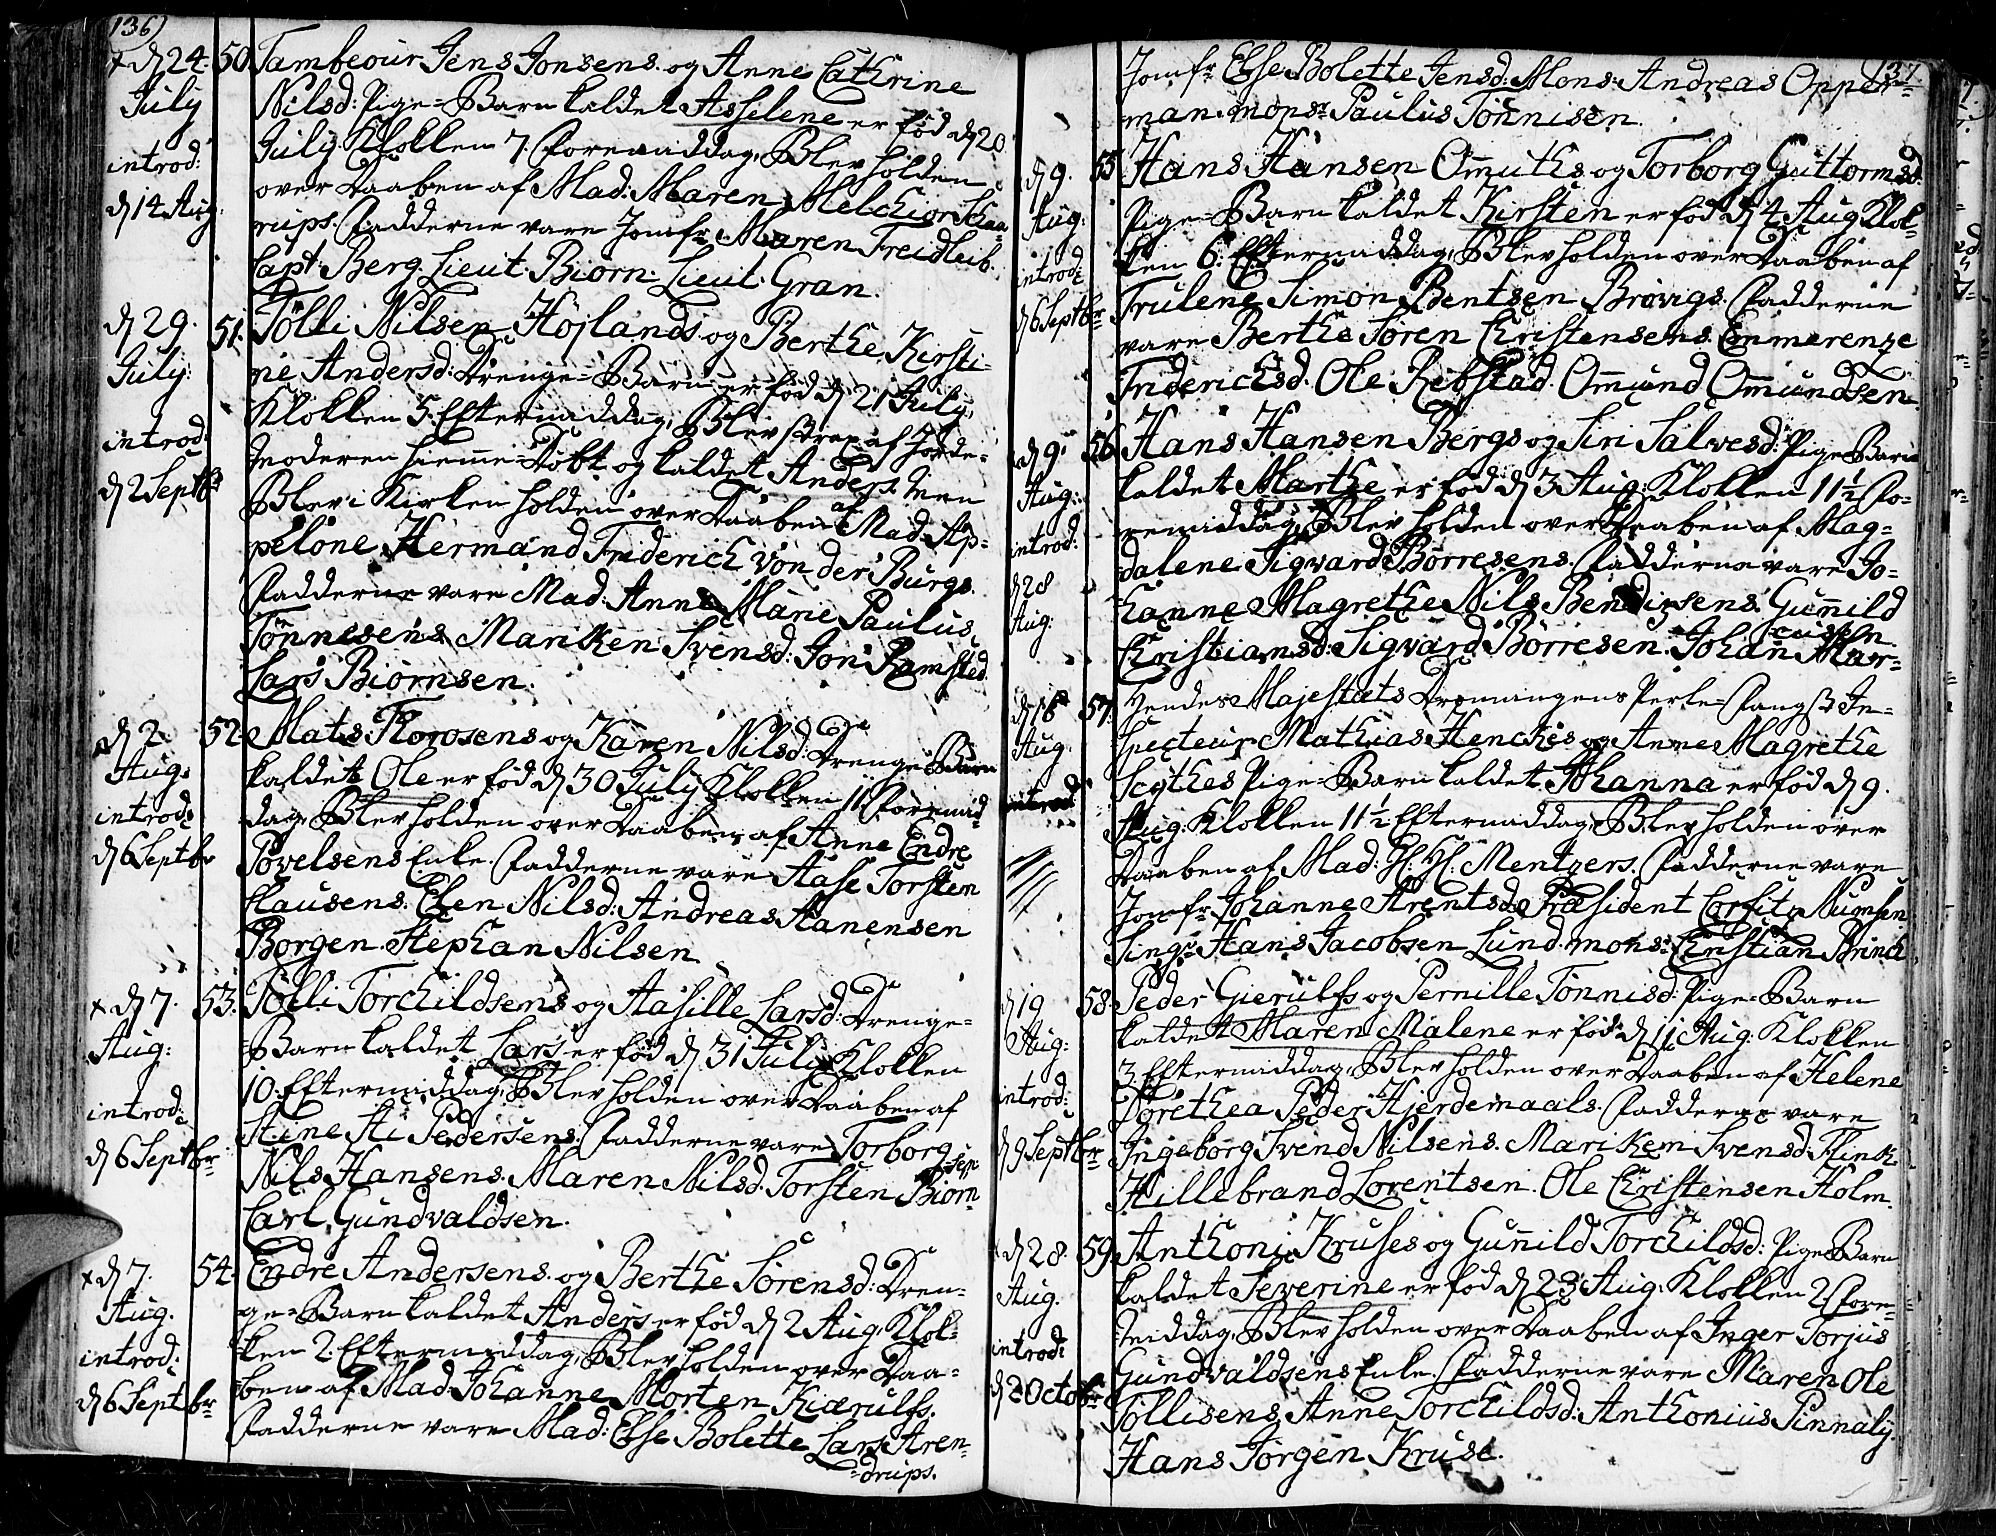 136)
x d 24. July introd: d 14 Aug:
50. Tambeour Jens Jonsens. og Anne Cathrine
Nilsd: Pige-Barn kaldet Assilene er fød d 20
July Klokken 7. Foremiddag, Blev holden
over Daaben af Mad: Maren Melchior Schaa-
rups. Fadderne vare Jomfr: Maren Freidleib.
Capt: Berg. Lieut: Biørn. Lieut: Gran.
d 29. July: introd: d 2 Septbr
51. Tølli Nilsen Højlands og Berthe Kirsti-
ne Andersd: Drenge-Barn er fød d 21 July,
Klokken 5. Eftermiddag, Blev strax af Jorde-
Moderen hieme-Døbt og kaldet Anders. Men
Blev i Kirken holden over Daaben af Mad: Ap-
pelone Hermand Friderich von der Burgs.
Fadderne vare Mad: Anne Marie Paulus
Tønnesens Mariken Svensd: Jon Ramsted.
Lars Biørnsen.
d 2. Aug: introd: d 6 Septbr
52. Mats Florosens og Karen Nilsd: Drenge-Barn
kaldet Ole er fød d 30 July Klokken 11 Foremid-
dag, Blev holden over Daaben af Anne Endre
Povelsens Enke. Fadderne vare Aase Torsten
Clausens. Elen Nilsd: Andreas Hanensen
Borgen. Stephan Nilsen.
x d 7. Aug: introd: d 6 Septbr
53. Tølli Torchildsens og Aasille Larsd: Drenge-
Barn kaldet Lars er fød d 31 July Klokken
10. Eftermiddag, Blev holden over Daaben af
Stine Ati Pedersens. Fadderne vare Torborg
Nils Hansens. Maren Nilsd. Torsten Biørn-
sen
Carl Gundvaldsen.
x d 7. Aug. introd: d 6 Septbr
54. Endre Andersens. og Berthe Sørensd: Dren-
ge-Barn kaldet Anders er fød d 2 Aug. Klok-
ken 2. Eftermiddag, Blev holden over Daa-
ben af Mad: Johanne Morten Kierulfs.
Fadderne vare Mad: Else Bolette Lars Aren-
drups.
137.
Jomfr Else Bolette Jensd: Mons: Andreas Opper-
man. monsr Paulus Tönnisen.
d 9. Aug: introd: d 6 Septbr
55. Hans Hansen Omuths og Torborg Guttormsd:
Pige-Barn kaldet Kirsten er fød d 4 Aug Klok-
ken 6. Eftermiddag, Blev holden over Daaben af
Trulene Simon Bentsen Brøvigs. Fadderne
vare Berthe Søren Christensens. Emmerenze
Friderichsd. Ole Ribstad. Omund Omundsen.
d 9. Aug: introd: d 28 Aug:
56. Hans Hansen Bergs og Siri Salvesd: Pige-Barn
kaldet Marthe er fød d 3 Aug: Klokken 11½ Fo-
remiddag, Blev holden over Daaben af Mag-
dalene Sigvard Børresens. Fadderne vare Jo-
hanne Magrethe Nils Bendixsens. Gunild
Christiansd: Sigvard Børresen. Johan Mar-
cussen
d 18 Aug. introd:
57. Hendes Majestæts Dronningens Perle-Fangst In-
specteur Mathias Henckes og Anne Magrethe
Seythes Pige-Barn kaldet Johanna er fød d 9.
Aug: Klokken 11½ Eftermiddag, Blev holden over
Daaben af Mad: Mentzers. Fadderne vare
Jomfr: Johanne Arentsd: Præsident Corfitz Numsen
Sing: Hans Jacobsen Lund. mons: Christian Brinch
d 19 Aug: introd: d 9 Septbr
58. Peder Gierulfs og Pernille Tönnisd: Pige-Barn
kaldet Maren Malene er fød d 11 Aug: Klokken
3 Eftermiddag, Blev holden over Daaben af Helene
Dorethea Peder Hjerdemaals. Fadderne vare
Ingeborg Svend Nilsens. Mariken Svensd. Flink.
Hillebrand Lorentsen. Ole Christensen Holm.
d 28. Aug. introd: d 2 Octobr
59. Anthoni Kruses og Gunild Torchildsd: Pige-Barn
kaldet Severine er fød d 23 Aug: Klokken 2. Fore-
Middag, Blev holden over Daaben af Inger Torjus
Gundvaldsens Enke. Fadderne vare Maren Ole
Tøllisens Anne Torchildsd: Anthonius Pinnaly.
Hans Jørgen Kruse.